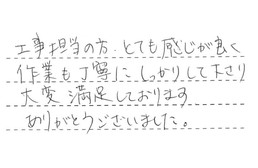 工事担当の方、とても感じが良く
作業も丁寧にしっかりして下さり
大変満足しております
ありがとうございました。